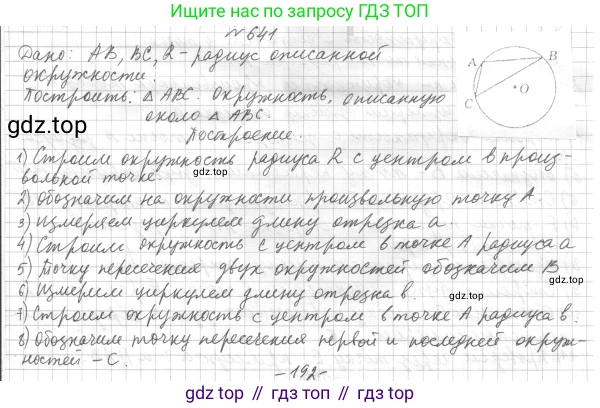 Ищите нас по запросу ГДЗ ТОП
№ 641
Дано: AB, BC, R - радиус описанной
окружности.
Построить: △ ABC. окружность, описанную
около △ ABC.
gdz.top
Построение.
A
B
C
O
1) Строим окружность радиуса R с центром в произ-
вольной точке.
2) Обозначим на окружности произвольную точку A.
3) Измеряем циркулем длину отрезка a.
4) Строим окружность с центром в точке A радиуса a
5) Точку пересечения двух окружностей обозначим B
6) Измерим циркулем длину отрезка b.
7) Строим окружность с центром в точке A радиуса b.
8) Обозначим точку пересечения первой и последней окруж-
ностей - C.
gdz.top
-192-
gdz top // gdz top // gdz.top